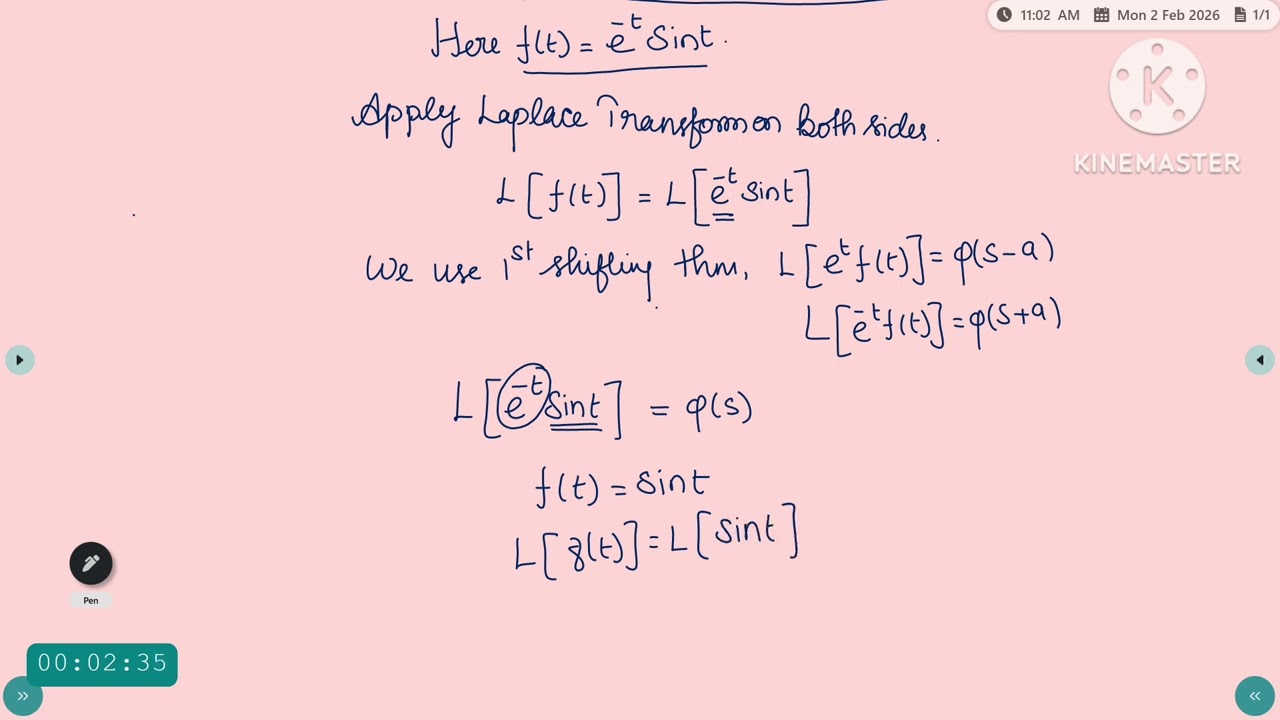 11:02 AM Mon 2 Feb 2026 1/1
Here f(t) = e⁻ᵗ Sint.
KINEMASTER
Apply Laplace Transform on Both sides.
L[f(t)] = L[e⁻ᵗ Sint]
We use 1ˢᵗ shifting thm, L[eᵗ f(t)] = φ(s-a)
L[e⁻ᵗ f(t)] = φ(s+a)
L[e⁻ᵗ Sint] = φ(s)
f(t) = Sint
L[f(t)] = L[Sint]
Pen
00:02:35